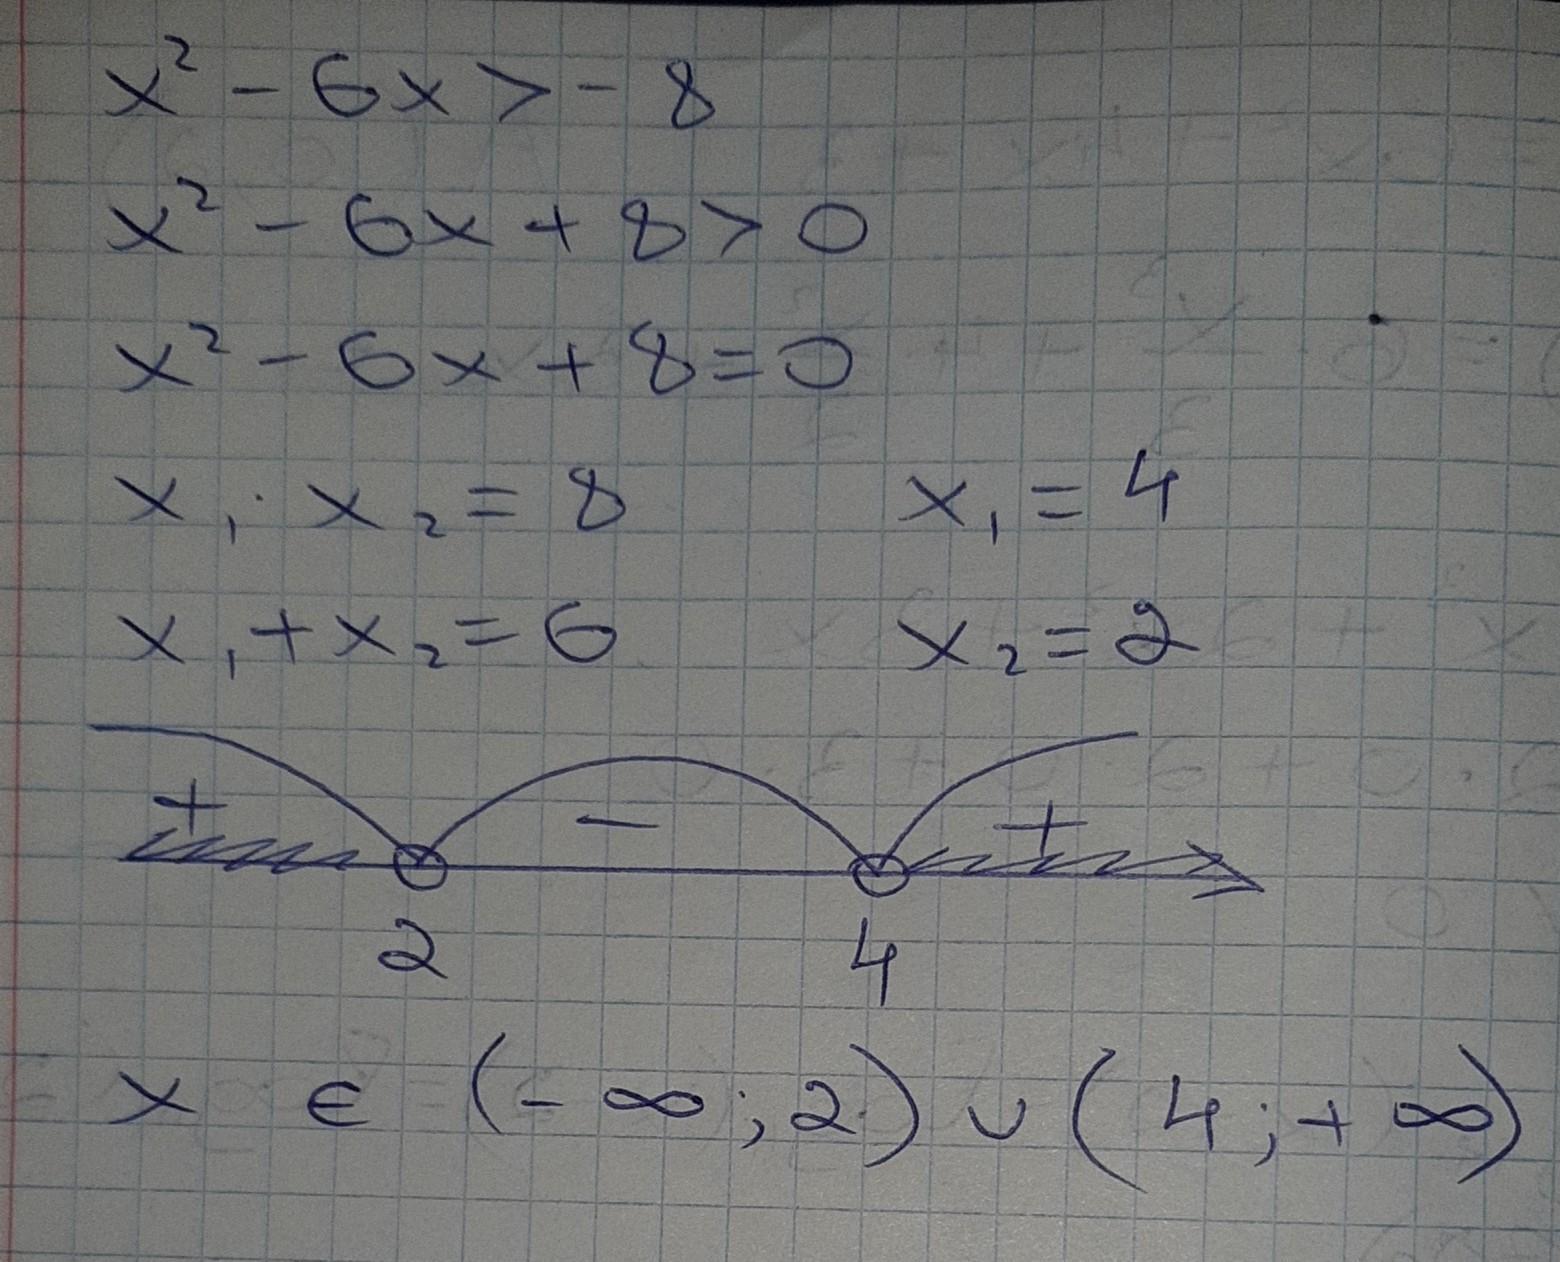 x² - 6x > - 8
x² - 6x + 8 > 0
x² - 6x + 8 = 0
x₁ · x₂ = 8 x₁ = 4
x₁ + x₂ = 6 x₂ = 2
+ - +
2 4
x ∈ (- ∞; 2) ∪ (4; + ∞)